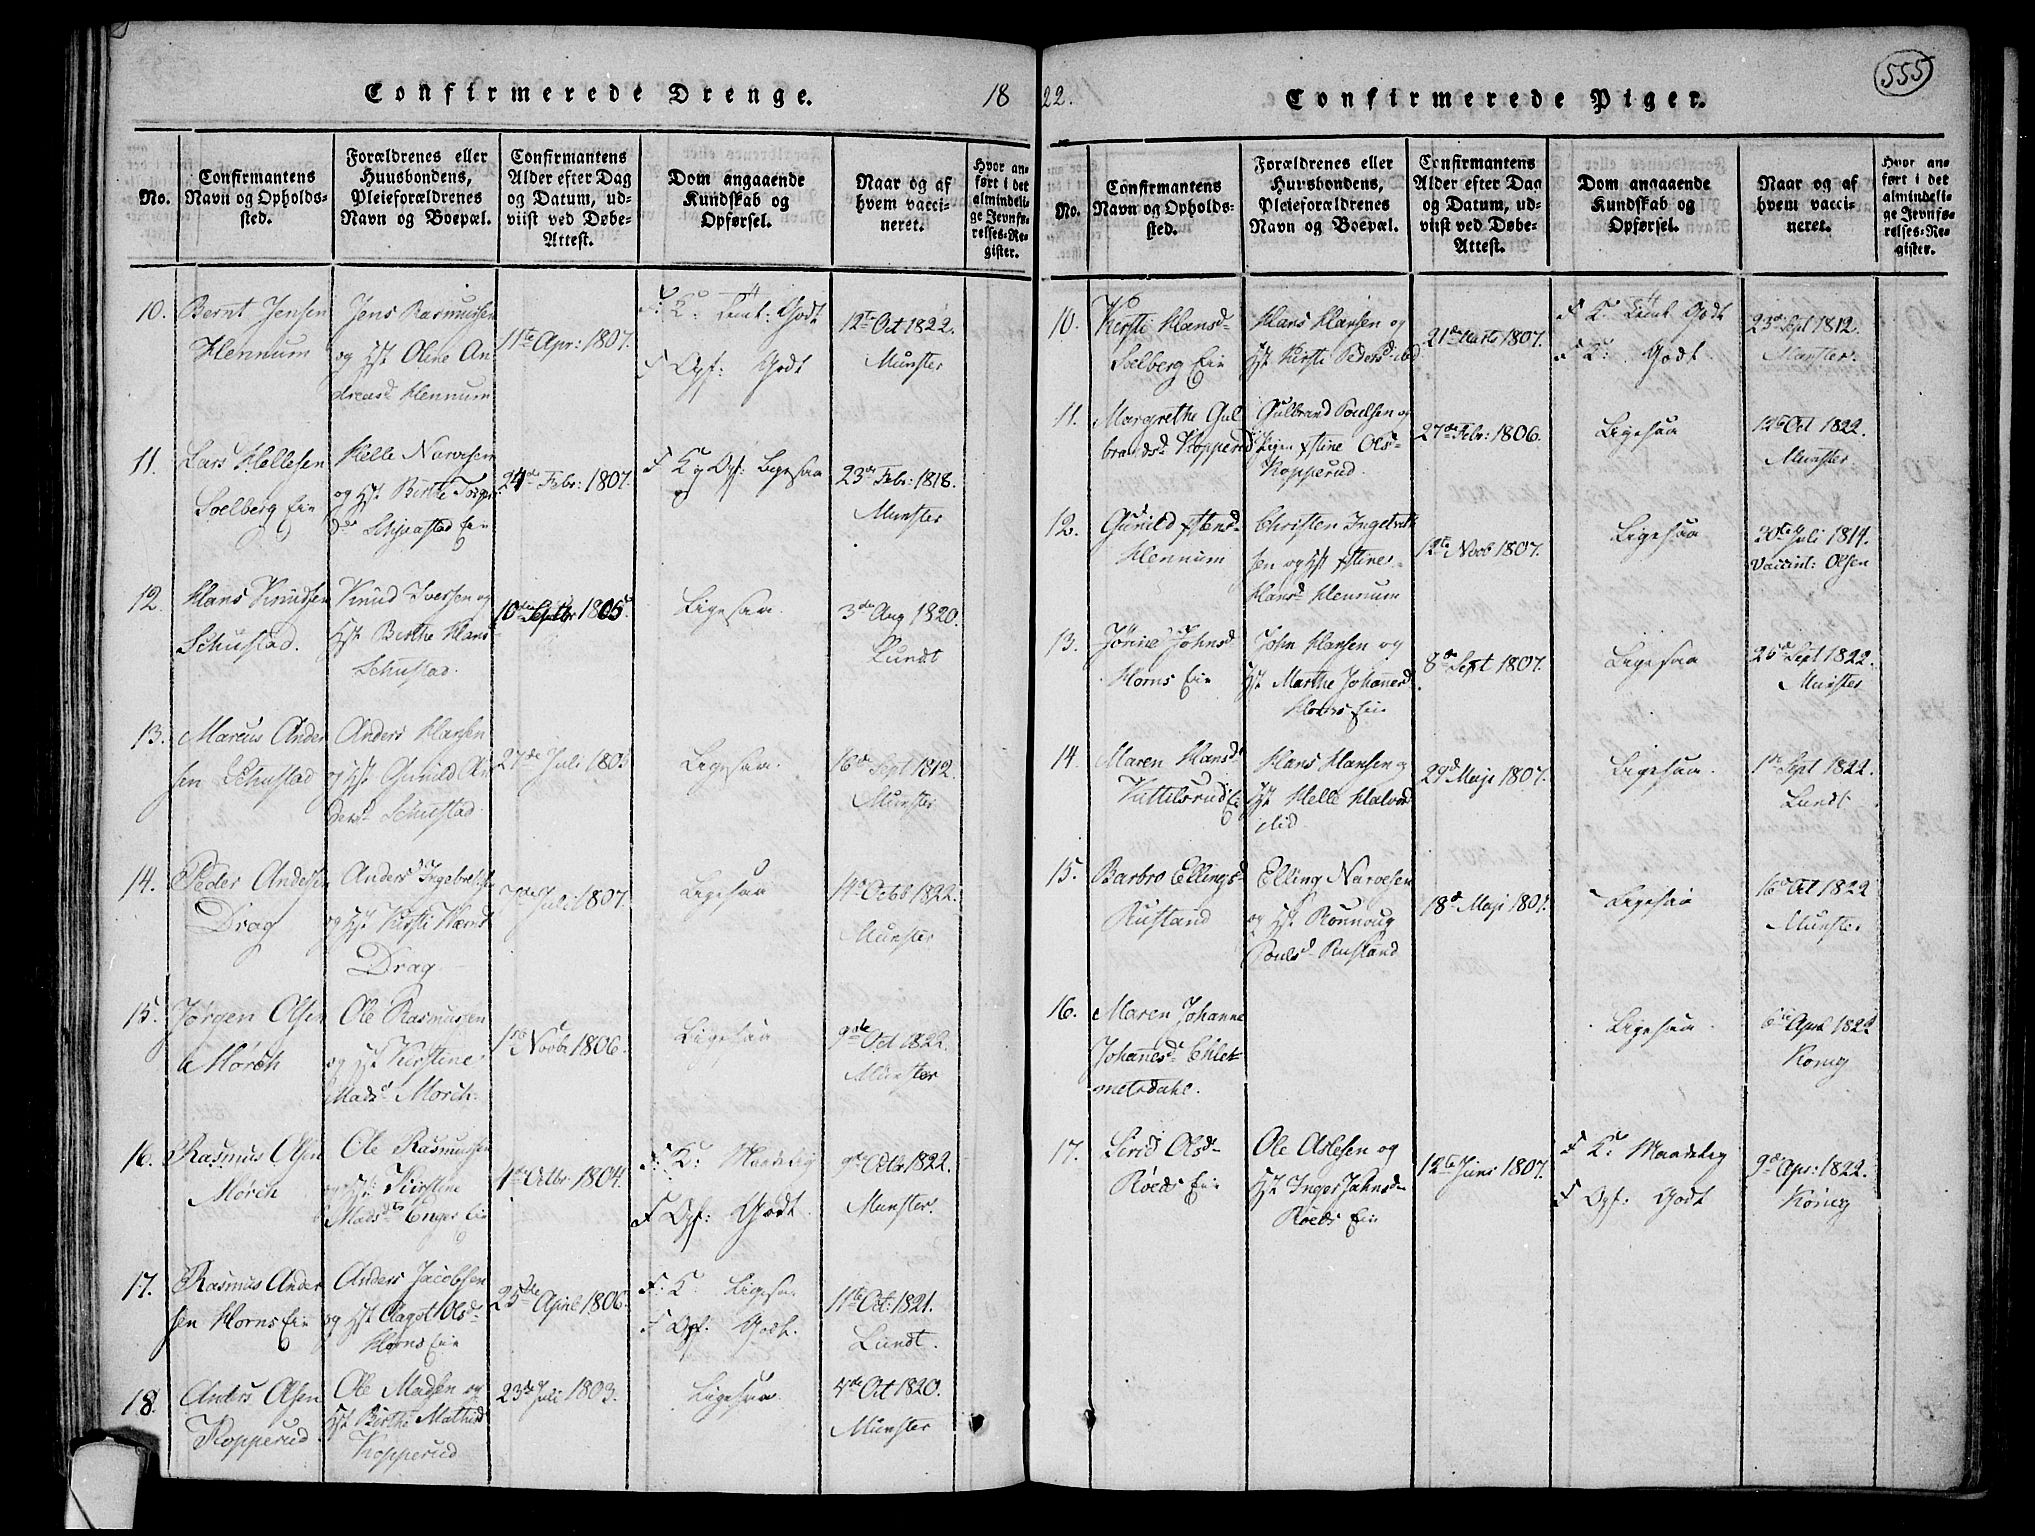 Confirmerede Drenge.
18
No.
Confirmantens
Navn og Opholds-
sted.
Forældrenes eller
Huusbondens,
Pleieforældrenes
Navn og Boepæl.
Confirmantens
Alder efter Dag
og Datum, ud-
viist ved Døbe-
Attest.
Dom angaaende
Kundskab og
Opførsel.
Naar og af
hvem vacci-
neret.
Hvor an-
ført i det
almindeli-
ge Jevnfø-
relses-Re-
gister.
10.
Bernt Jensen
Hennum
Jens Rasmussen
og Hst Oline An
dreasd Hennum
11te Apr: 1807.
F: K: Temt: Godt
F Opf: Godt
12te Oct 1822.
Munster
11.
Lars Hellesen
Solberg Eie
Helle Narvesen
og Hst Birthe
24de Febr: 1807.
F K og Opf: Ligesaa
23de Febr: 1818.
Munster
12.
Hans Knudsen
Schustad.
Knud Iversen og
Hst Birthe Hans
Schustad.
10de Septbr 1805
Ligesaa.
3de Aug 1820.
Lundt
13.
Marcus Ander
sen Schustad
Anders Hansen
og Hst Gunild An
dersd Schustad
27de Juli 1805
Ligesaa.
16de Sept 1812
Munster
14.
Peder Andersen
Drag
Anders Ingebretsen
og Hst Kirsti
Drag
7de Juli 1807.
Ligesaa
14de Octb 1822.
Munster
15.
Jørgen Olsen
Mörch
Ole Rasmussen
og Hst Kirstine
Madsd Mörch.
1ste Novbr 1806.
Ligesaa
9de Oct 1822.
Munster
16.
Rasmus Olsen
Mörch
Ole Rasmussen
og Hst: Kirstine
Madsdts Enger Eie
1de Octbr 1804.
F: K: Maadelig
F Opf: Godt.
9de Octbr 1822.
Munster.
17.
Rasmus Ander
sen Horns Eie
Anders Jacobsen
og Hst Aagot Olsd
Horns Eie
25de April 1806.
F: K: Ligesa.
F Opf. Godt.
11te Oct: 1821.
Lundt.
18.
Anders Olsen
Kopperud.
Ole Madsen og
Hst Birthe Mathisd
Kopperud
23de Juli 1803.
Ligesaa.
4de Oct 1820.
Munster
22.
Confirmerede Piger.
555
No.
Confirmantens
Navn og Opholds-
sted.
Forældrenes eller
Huusbondens,
Pleieforældrenes
Navn og Boepæl.
Confirmantens
Alder efter Dag
og Datum, ud-
viist ved Døbe-
Attest.
Dom angaaende
Kundskab og
Opførsel.
Naar og af
hvem vacci-
neret.
Hvor an-
ført i det
almindeli-
ge Jevnfø-
relses-Re-
gister.
10.
Kirsti Hansd
Solberg Eie
Hans Hansen og
Hst Kirsti Pedersd ibd
21de Marts 1807.
F K: Temt Godt
F K: Godt
23de Sept 1812.
Munster
11.
Margrethe Gul
brandsd Kopperud
Gulbrand Poulsen og
Pigen Stine Olsd
Kopperud.
27de Febr: 1806.
Ligesaa
12te Oct 1822.
Munster
12.
Gunild
Hennum
Christen Ingebret
sen og Hst Stine
Hansd Hennum
12te Novb 1807.
Ligesaa
30te Juli 1814.
Vaccint: Olsen
13.
Jörine Johnsd
Horns Eie
John Hansen og
Hst Marthe Johannesd
Horns Eie
8de Sept 1807.
Ligesaa
25de Sept 1822.
Munster
14.
Maren Hansd
Kittilsrud Eie
Hans Hansen og
Hst Helle Halvord
ibid.
29d Maji 1807.
Ligesaa.
1ste Sept 1822.
Lundt
15.
Barbro Ellingsd
Rustand
Elling Narvesen
og Hst Rönnoug
Poulsd Rustand
18d Maji 1807.
Ligesaa
16de Oct 1822
Munster
16.
Maren Johanne
Johannesd
metsdahl.
Ligesaa
6te April 1822
König
17.
Siri Olsd
Röeds Eie
Ole Aslesen og
Hst Inger Jahnsd
Röeds Eie
12te Juni 1807.
F K: Maadelig
F Opf: Godt
9de Apr: 1822.
König